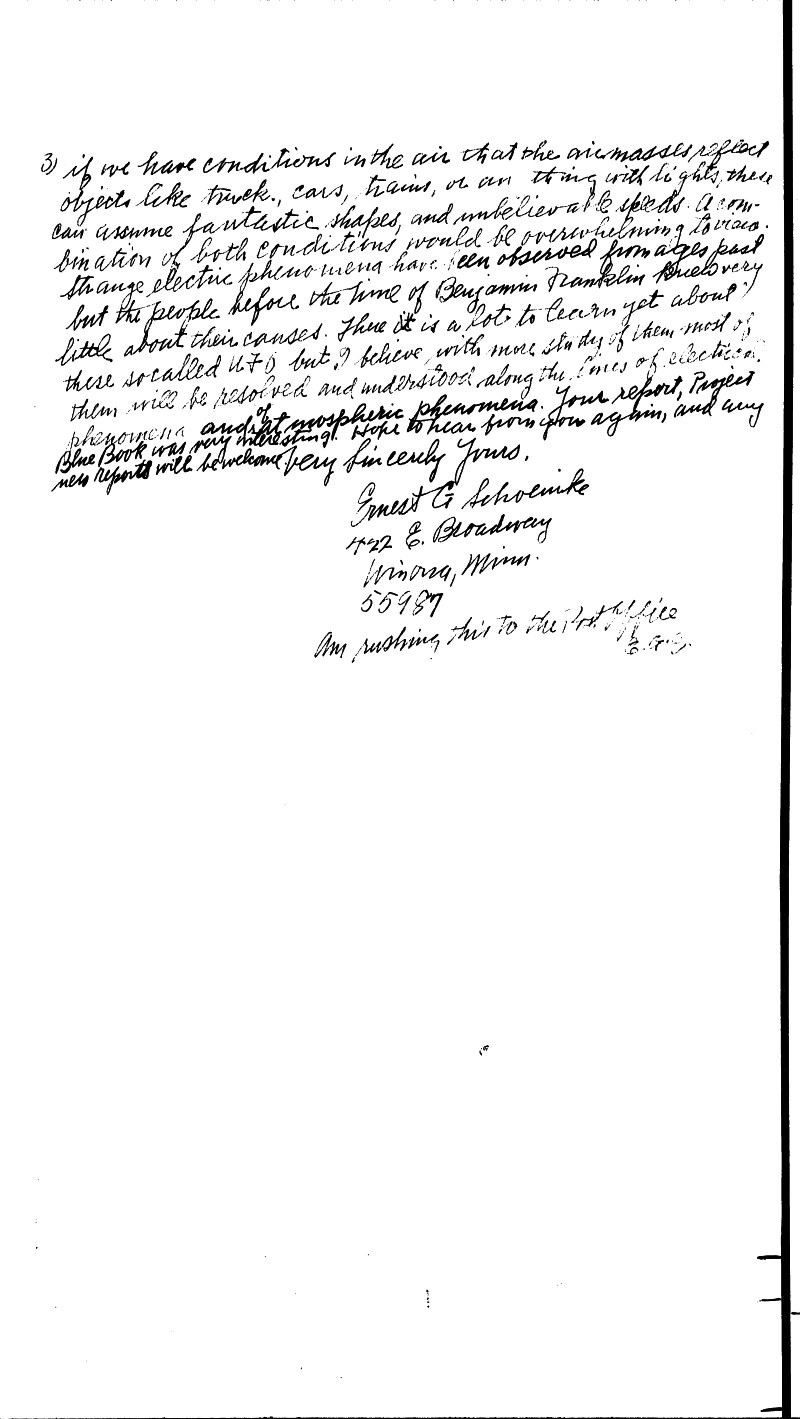 3) if we have conditions in the air that the air masses reflect
objects like truck., cars, trains, or an thing with lights, these
can assume fantastic shapes, and unbelievable speeds. A com-
bination of both conditions would be overwhelming to view.
Strange electric phenomena have been observed from ages past
but the people before the time of Benjamin Franklin knew very
little about their causes. There is a lot to learn yet about
these so called UFO but I believe, with more study of them most of
them will be resolved and understood along the lines of electical
phenomena and of atmospheric phenomena. Your report, Project
Blue Book was very interesting. Hope to hear from you again, and any
new reports will be welcome Very Sincerely Yours,
Ernest G Schoenike
422 E. Broadway
Winona, Minn.
55987
Am rushing this to the Post Office
E.G.S.